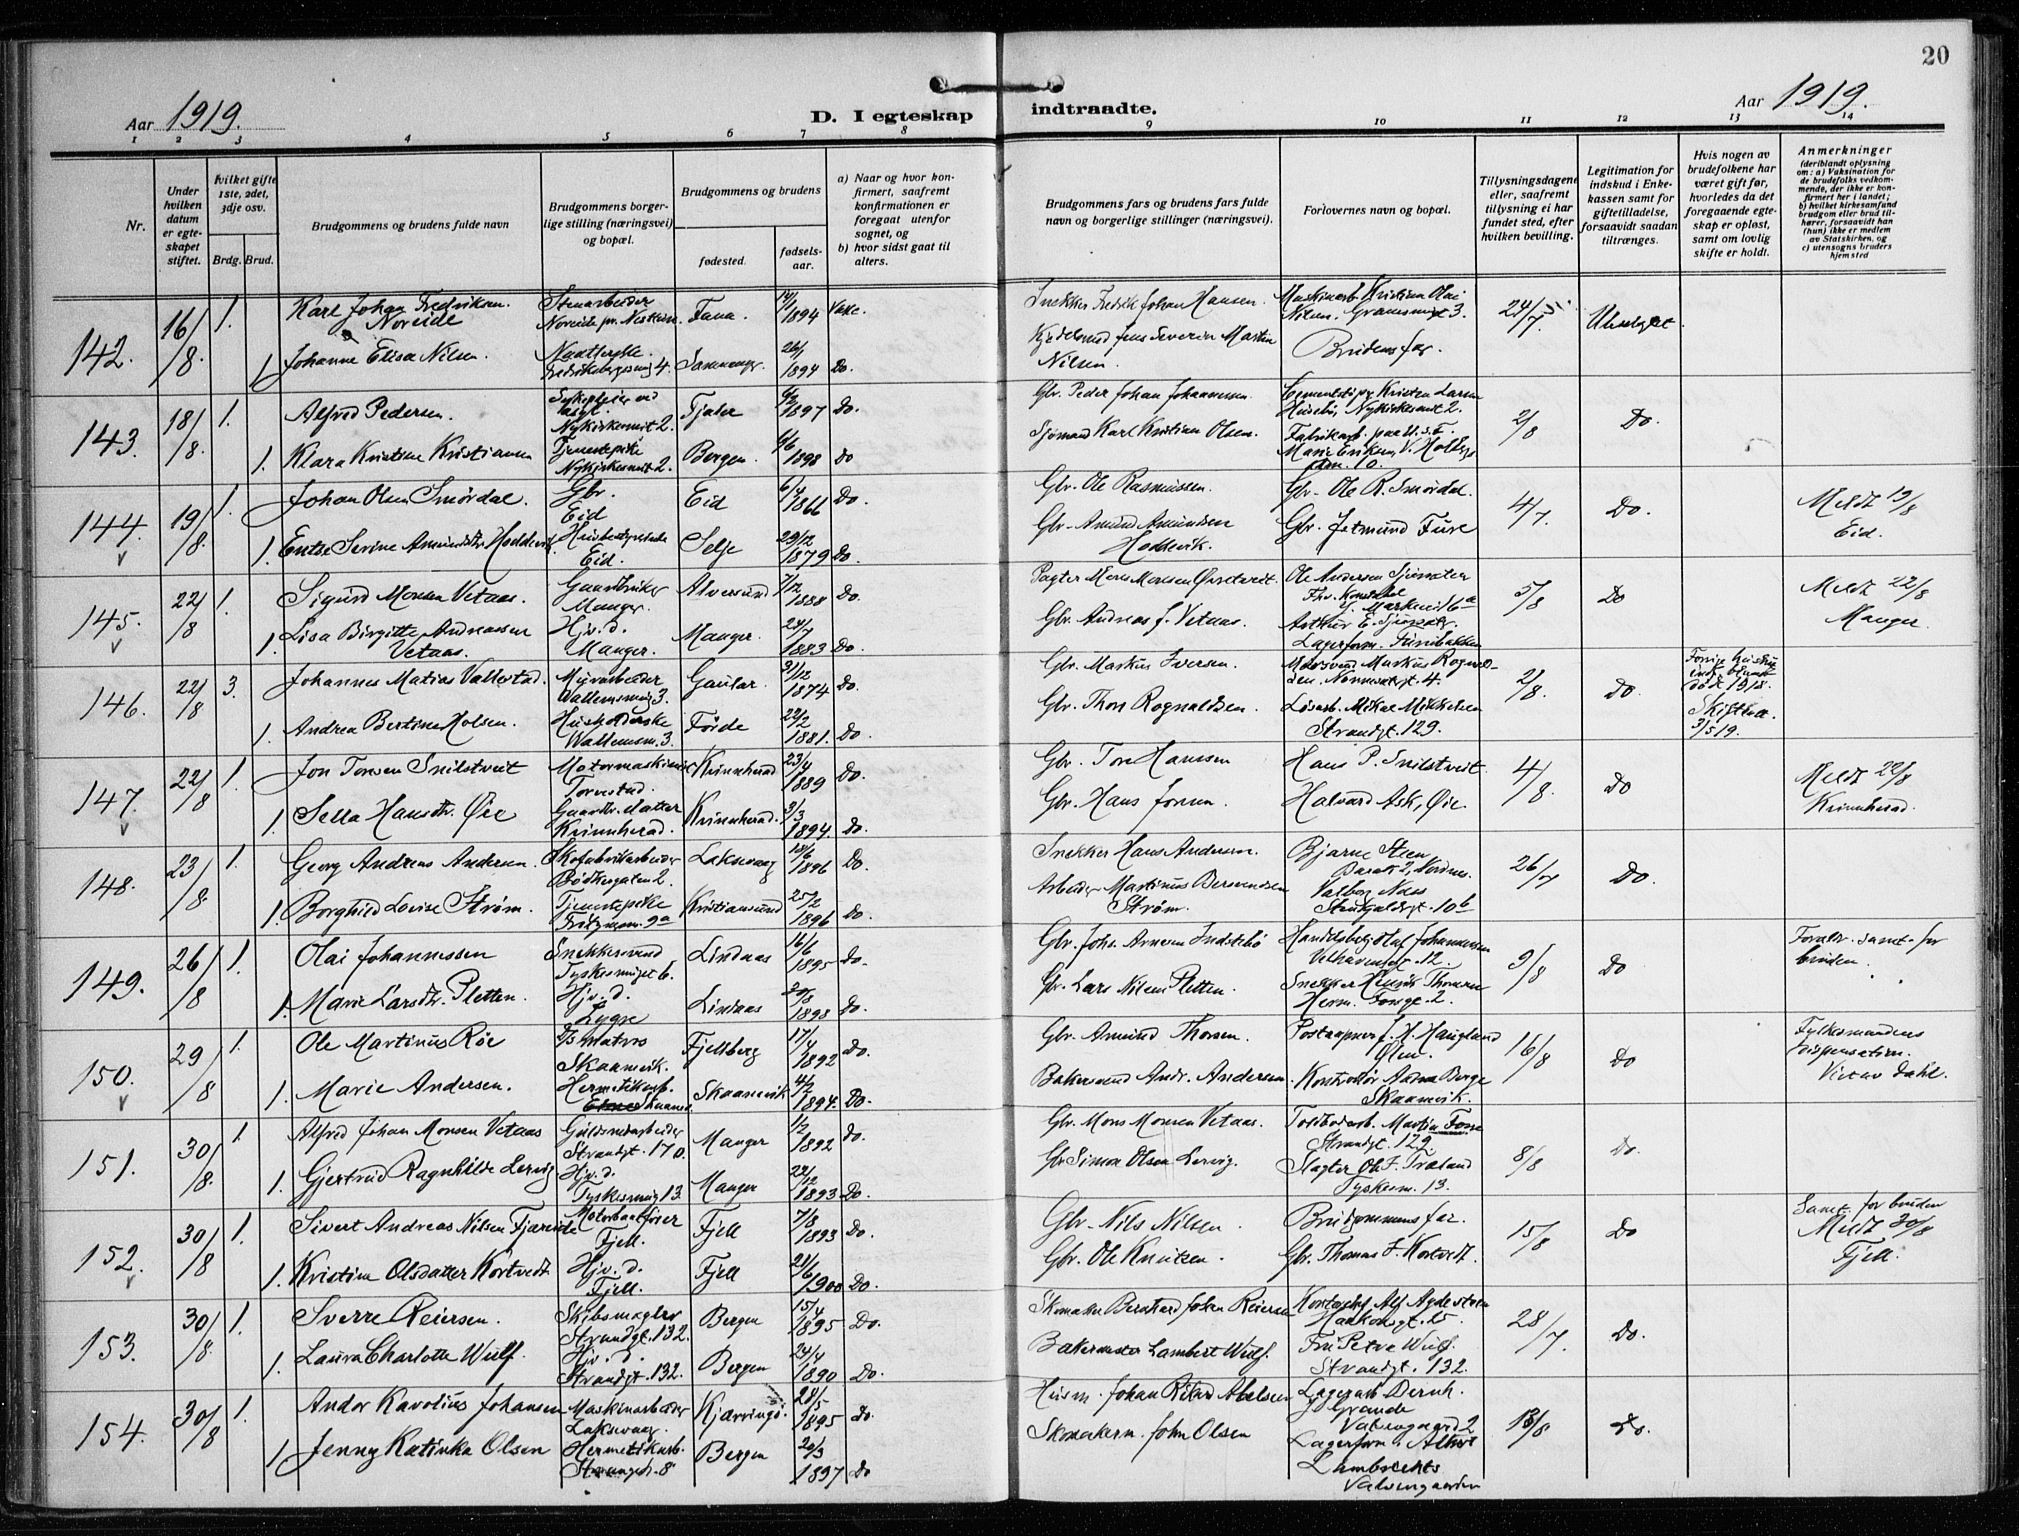 20
Aar 1919.
D. I egteskap
indtraadte.
Aar 1919.
1 2 3 4 5 6 7 8 9 10 11 12 13 14
Nr.
Under hvilken datum er egteskapet stiftet.
hvilket gifte 1ste, 2det, 3dje osv.
Brdg. Brud.
Brudgommens og brudens fulde navn
Brudgommens borgerlige stilling (næringsvei) og bopæl.
Brudgommens og brudens
fødested.
fødselsaar.
a) Naar og hvor konfirmert, saafremt konfirmationen er foregaat utenfor sognet, og
b) hvor sidst gaat til alters.
Brudgommens fars og brudens fars fulde navn og borgerlige stillinger (næringsvei).
Forlovernes navn og bopæl.
Tillysningsdagene eller, saafremt tillysning ei har fundet sted, efter hvilken bevilling.
Legitimation for indskud i Enkekassen samt for giftetilladelse, forsaavidt saadan tiltrænges.
Hvis nogen av brudefolkene har været gift før, hvorledes da det foregaaende egteskap er opløst, samt om lovlig skifte er holdt.
Anmerkninger
(deriblandt oplysning om: a) Vaksination for de brudefolks vedkommende, der ikke er konfirmert her i landet; b) hvilket kirkesamfund brudgom eller brud tilhører, forsaavidt han (hun) ikke er medlem av Statskirken, og c) utensogns bruders hjemsted
142. 16/8 1. Karl Johan Fredriksen Noreide Stenarbeider Fana 1894
Snekker Fredrik Johan Hansen. 24/7
1. Johanne Elisa Nilsen. 26/1 1894 Do.
Jens Severin Martin Nilsen. Brudens far.
143. 18/8 1. Alfred Pedersen. Nykirkesmit 2. 1897 Do.
Gbr. Peder Johan Johannessen. 2/8 Do.
1. Klara Kristine Kristiansen Tjenestepike Nykirkesmit 2. Bergen 6/6 1898 Do
Sjømand Karl Kristian Olsen.
144. 19/8 1. Johan Olsen Smørdal. Gbr. Eid Eid 6/4 1866 Do.
Gbr. Ole Rasmussen. Gbr. Ole R. Smørdal. 4/7. Do. Meldt 19/8 Eid.
1. Serine Amundsdtr. Hoddevik. Eid. Selje 1879 Do.
Gbr. Amund Amundsen Hoddevik. Gbr. Jetmund Fure
145. 22/8 1. Sigurd Monsen Vetaas. Gaardbruker Manger. Alversund 7/12 1888 Do.
Ole Andersen 5/8 Do Meldt 22/8 Manger
1. Lisa Birgitte Andreassen Vetaas. Hjv. d. Manger. Manger. 1883 Do.
Gbr. Andreas J. Vetaas.
146. 22/8 3. Johannes Matias Vallestad. Murarbeider 3. Gaular. 21/12 1874 Do.
Gbr. Markus Iversen. 2/8. Do død 1918.
1. Andrea Bertine Holsen. Husholderske 3. Førde 22/2 1881. Do.
Gbr. Thors Rognaldsen. Mikal Mikkelsen Strandgt. 129. 3/5 19.
147. 22/8 1. Jon Torsen Snilstveit Motormaskinist Torvestad. Kvinnherad 23/4 1889 Do.
Gbr. Tore Hanssen Hans P. Snilstveit. 4/8. Do Meldt 22/8 Kvinnherad.
1. Sella Hansdtr. Øie Gaardbr. datter Kvinnherad. Kvinnherad. 3/3 1894. Do.
Gbr. Hans Jonsen. Halvard Ask, Øie.
148. 23/8 1. Georg Andreas Andersen. Skofabrikarbeider Bødkergaten 2. Laksevaag 1896 Do.
Snekker Hans Andersen. Bjarne Steen Barak 2, Nordnes. 26/7 Do.
1. Borghild Lovise Strøm. Tjenestepike 9a Kristiansund 25/2 1896 Do.
Arbeider Martinus Berentsen Strøm. Valborg Næss 10b
149. 26/8 1. Olai Johannessen Snekkersvend Tyskesmuget 6. Lindaas 16/6 1895 Do.
Gbr. Johs. Arnesen Indstebø Olaf Johannessen Welhavensgt. 12. 9/8 Do bruden.
1. Marie Larsdtr. Pletten. Hjv. d. Lygre Lindaas 20/8 1898 Do.
Gbr. Lars Nilsen Pletten. Snekker Henrik Thomsen Herm. Fossgt. 2.
150. 29/8 1. Ole Martinus Røe D/s matros Skaanevik. Fjelberg 17/4 1892 Do.
Gbr. Amund Thorsen. Postaapner J. H. Haugland Ølen. 16/8 Do Fylkesmandens dispensation. Viktor Dahl.
1. Marie Andersen. Hermetikarb. Skaanevik 4/2 1894. Do.
Bakersvend Andr. Andersen. Kontrollør Berge Skaanevik.
151. 30/8. 1. Alfred Johan Monsen Vetaas Guldsmedarbeider Strandgt. 170. Manger 1/2 1892 Do.
Gbr. Mons Monsen Vetaas. Toldbodarb. Martin Fosse Strandgt. 129 8/8 Do.
1. Gjertrud Ragnhilde Lervig. Hjv. d. Tyskesmug 13. Manger 1893 Do.
Gbr Simon Olsen Lervig. Slagter Ole J. Træland Tyskesm. 13.
152. 30/8 1. Sivert Andreas Nilsen Fjæreide Motorbaatfører Fjell. Fjell 7/8 1893 Do.
Gbr. Nils Nilsen. Brudgommens far. 15/8 Do Samt. for bruden Meldt 30/8 Fjell.
1. Kristine Olsdatter Kortvedt Hjv. d. Fjell. Fjell 21/6 1900 Do.
Gbr. Ole Knutsen. Gbr. Thomas J. Kortvedt.
153. 30/8 1. Sverre Reiersen. Skibsmægler Strandgt. 132. Bergen 15/4 1895 Do.
Skomaker Bernhard Johan Reiersen Kontorchef Alf Haakonsgt. 25. 28/7 Do.
1. Laura Charlotte Wulf. Hjv. d. Strandgt. 132. Bergen 24/4 1890 Do.
Bakermester Lambert Wulf. Fru Petra Wulf. Strandgt. 132.
154. 30/8 1. Andor Karolius Johansen Maskinarbeider Laksevaag. Kjærringø. 28/5 1895 Do.
Husm. Johan Abelsen Lagerarb. Grande 2 Do.
1 Jenny Katinka Olsen Hermetikarb. Bergen 20/3 1897 Do
Skomakerm. John Olsen Lagerform. Albert Lambrechts